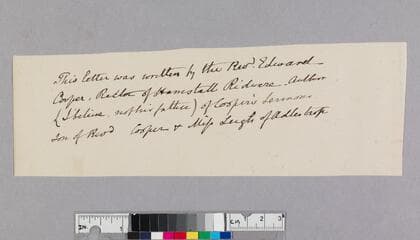 This letter was written by the Rev.d Edward
Cooper. Rector of Hamstall Ridware. Author
(I believe, not his father) of Cooper's Sermons
Son of Rev.d Cooper & Miss Leigh of Adlestrop
IN
1
CM
1
2
3